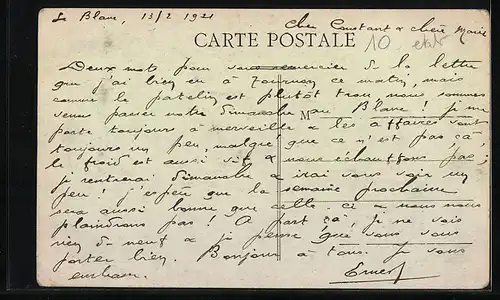 Le Blanc, 13/2 1921
Cher Constant & chère Marie
CARTE POSTALE
10
état
Deux mots pour vous remercier de la lettre
que j'ai bien eu à Tournon ce matin, mais
comme le patelin est plutôt trou, nous sommes
venus passer notre dimanche au Blanc! Je me
M
porte toujours à merveille & les affaires vont
toujours un peu, malgré que ce n'est pas ça,
le froid est aussi vif & nous réchauffons pas;
je rentrerai dimanche & irai vous voir un
peu! j'espère que la semaine prochaine
sera aussi bonne que celle ci & nous nous
plaindrons pas! A part ça, je ne vois
rien de neuf & je pense que vous vous
portez bien. Bonjour à tous. Je vous
embrasse.
Ernest